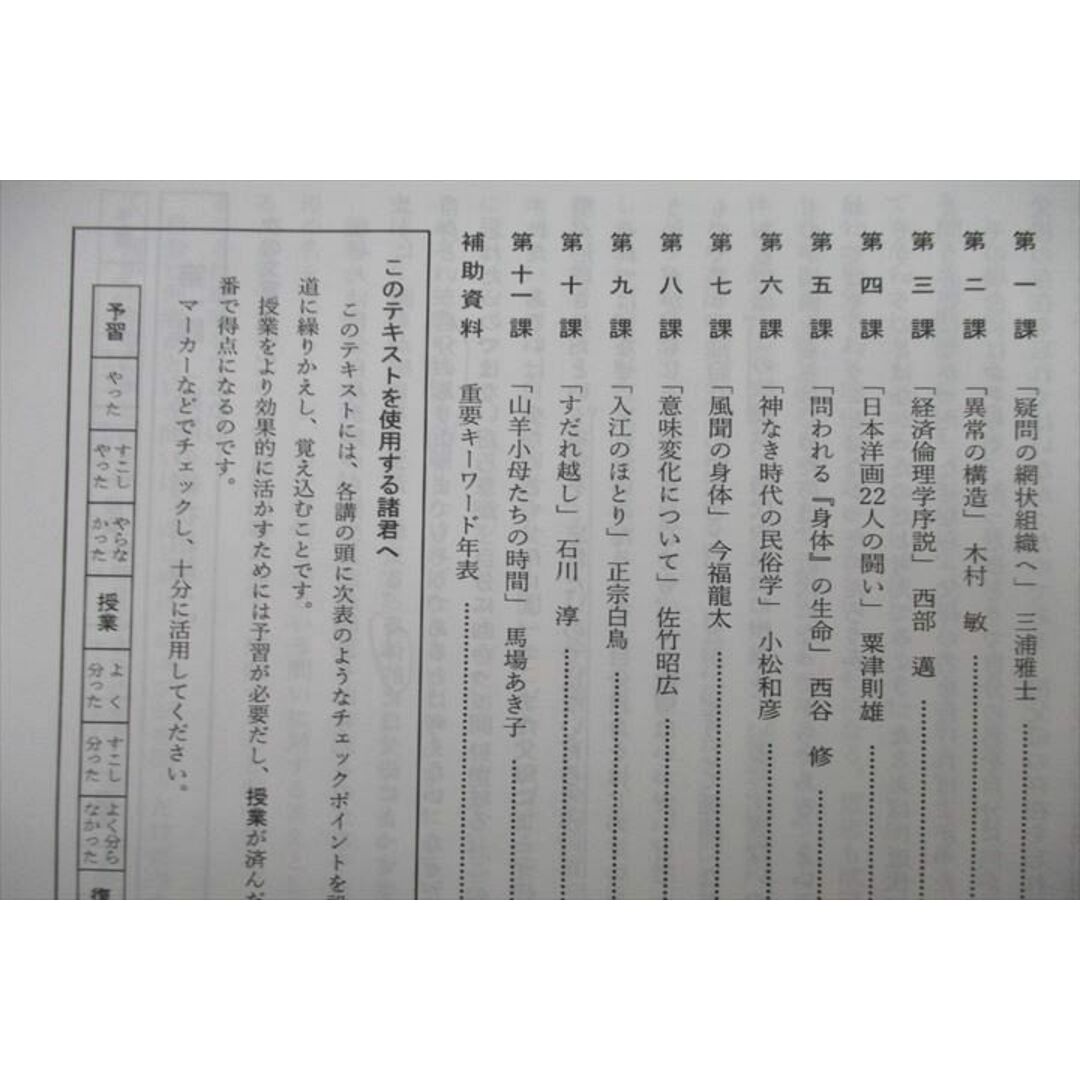 第一課 「疑問の網状組織へ」 三浦雅士
第二課 「異常の構造」 木村 敏
第三課 「経済倫理学序説」 西部 邁
第四課 「日本洋画22人の闘い」 粟津則雄
第五課 「問われる『身体』の生命」 西谷 修
第六課 「神なき時代の民俗学」 小松和彦
第七課 「風聞の身体」 今福龍太
第八課 「意味変化について」 佐竹昭広
第九課 「入江のほとり」 正宗白鳥
第十課 「すだれ越し」 石川 淳
第十一課 「山羊小母たちの時間」 馬場あき子
補助資料 重要キーワード年表
このテキストを使用する諸君へ
このテキストには、各講の頭に次表のようなチェックポイントを
道に繰りかえし、覚え込むことです。
授業をより効果的に活かすためには予習が必要だし、授業が済んだ
番で得点になるのです。
マーカーなどでチェックし、十分に活用してください。
予習
やった
すこしやった
やらなかった
授業
よく分った
すこし分った
よく分らなかった
復